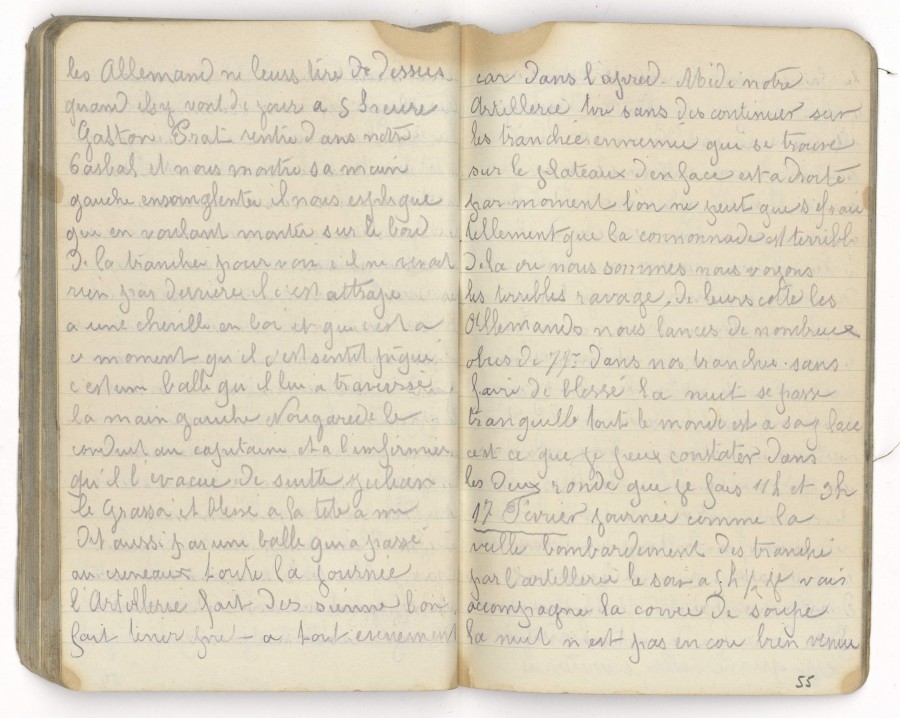 les Allemand ne leurs tire de dessus
quand ils y vont de jour a 5 heure
Gaston Prat rentre dans notre
Gasbal et nous montre sa main
gauche ensanglenter il nous esplique
que en voulant monter sur le bord
de la trancher pour voir il ne
rien par derriere il c'est attrape
a une cheville en boi et que c'est a
ce moment qu'il c'est sentit piqué
c'est une balle qu'il lui a traversé
la main gauche Nougarede le
conduit au capitaine et a l'infirmier
qu'il l'evacue de suitte
le Grassa et blessé a la tete a mi
Dit aussi par une balle qui a passé
au creneaux toute la journee
l'Artillerie fait des sienne l'on
fait tiner a tout evenement
car dans l'apred-Midi notre
Artillerie tir sans descontinuer sur
les tranchée ennemie qui se trouve
sur le plateaux d'en face est a droite
par moment l'on ne peut que
tellement que la connonnade est terrible
de la ou nous sommes nous voyons
les terribles ravage. de leurs cotte les
Allemands nous lances de nombreux
obus de 77 dans nos trancher sans
faire de blessé la nuit se passe
tranquille tout le monde est a sa place
est ce que je peux constater dans
les deux ronde que je fais 11h et 3h
17 Fevrier journée comme la
veille bombardement des tranché
par l'artillerie le soir a 5h ½ je vais
accompagne la corvée de soupe
la nuit n'est pas encore bien venue
55